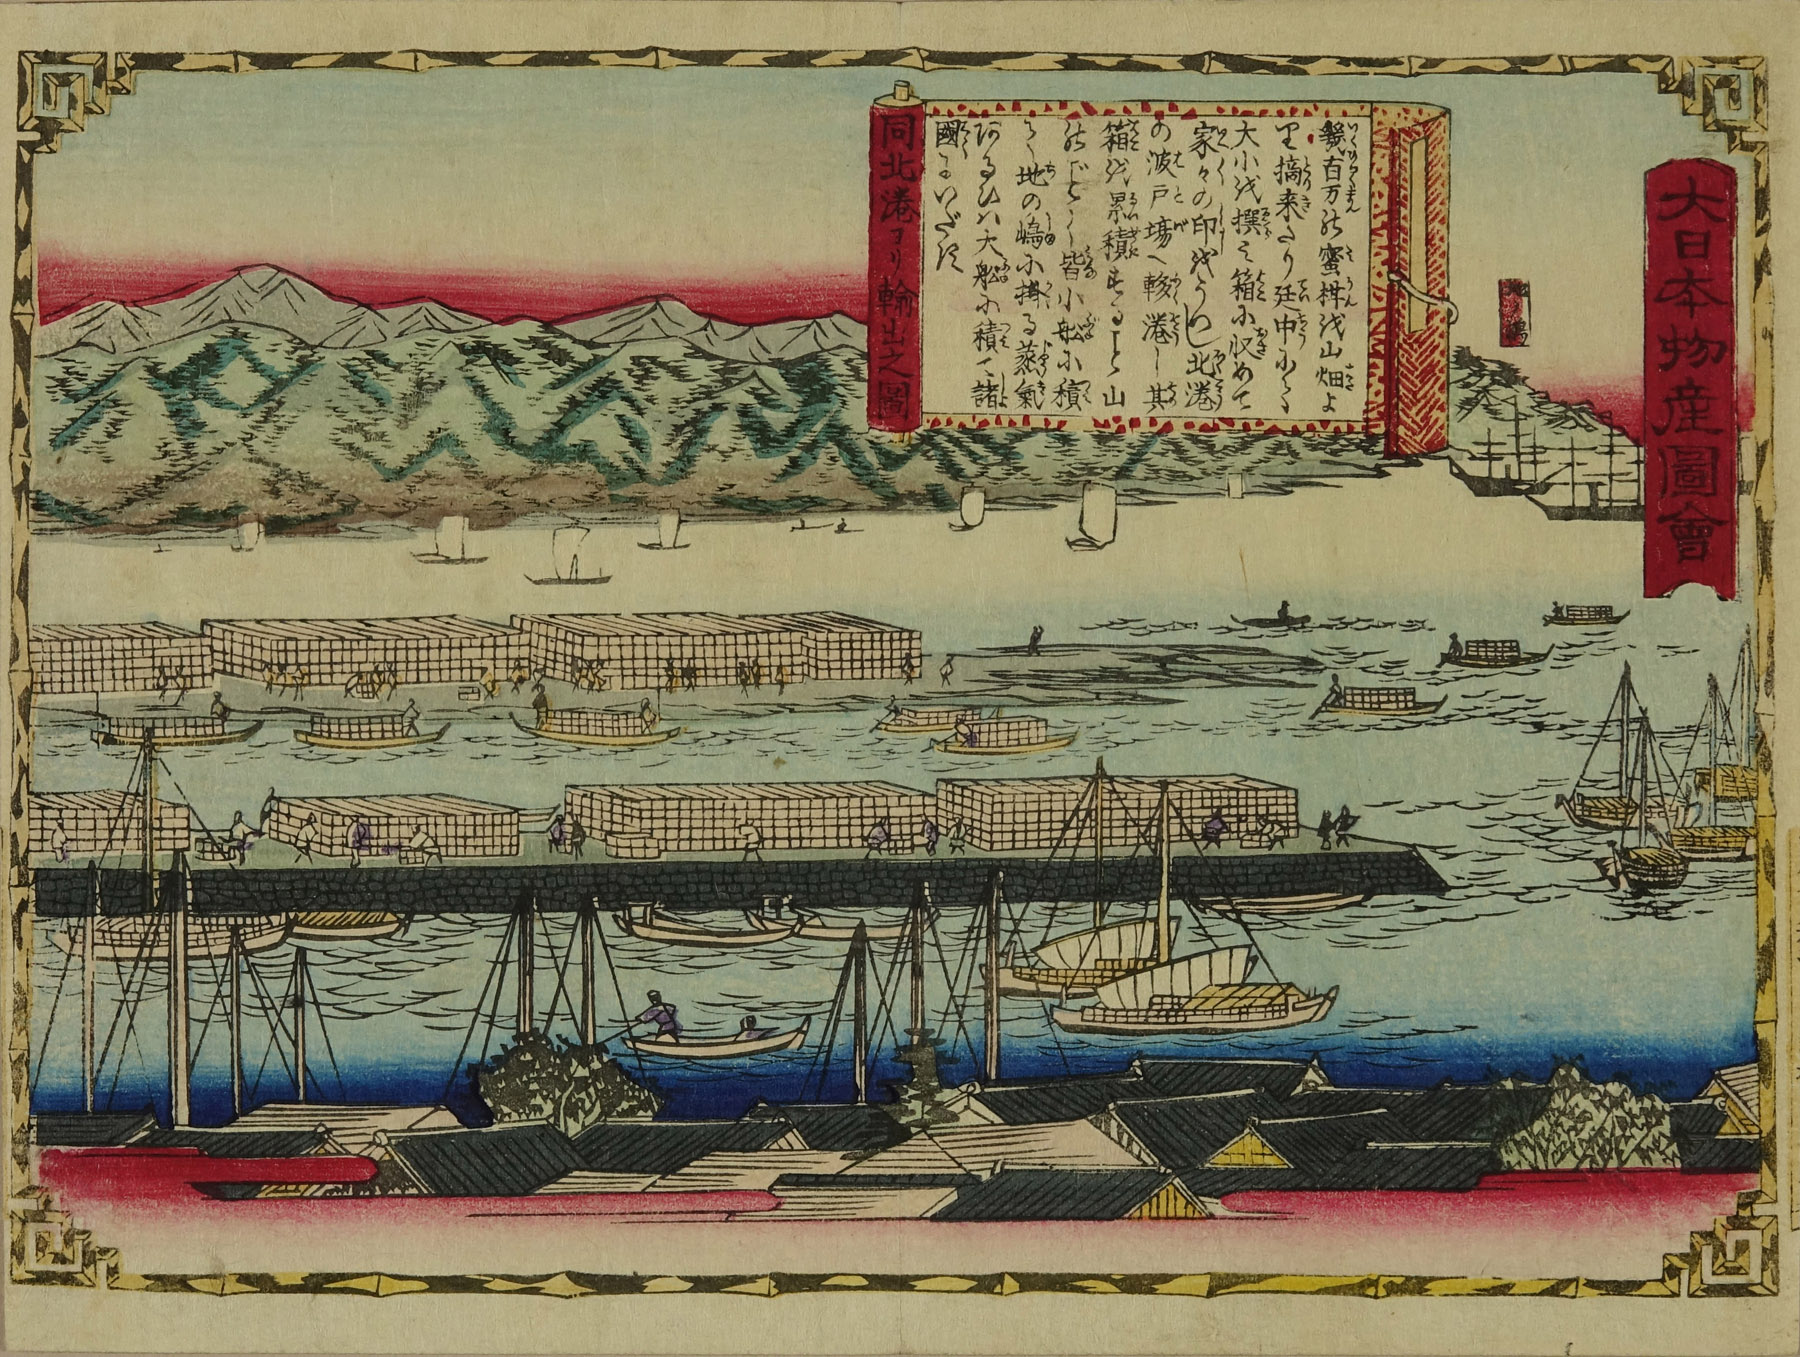 大日本物産圖會
地ノ嶋
幾百万の蜜柑を山畑よ
り摘来たり廷中にて
大小を撰み箱に収めて
家々の印を北港
の波戸場へ輸港し其
箱を累積すること山
のごとし皆小船に積
て地の嶋に掛る蒸氣
あるひハ大船に積て諸
國にいだす
同北港ヨリ輸出之圖